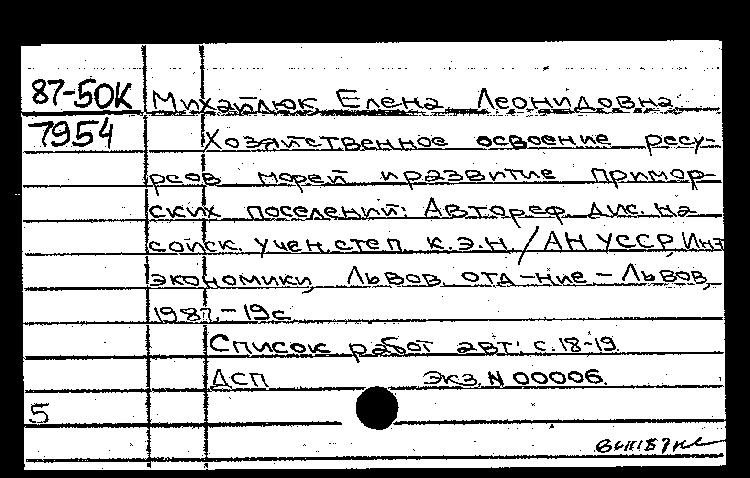 87-50К Михайлюк, Елена Леонидовна.
7954 Хозяйственное освоение ресу-
рсов морей и развитие примор-
ских поселений: Автореф. дис. на
соиск. учен. степ. к.э.н. / АН УССР, Инт
экономики, Львов. отд-ние – Львов,
1987. – 19с
Список работ авт: с. 18-19
ДСП Экз. N 00006.
5